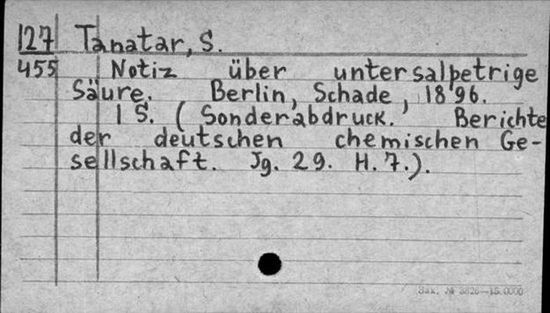 127 Tanatar, S.
455 Notiz über untersalpetrige
Säure. Berlin, Schade, 1896.
1 S. (Sonderabdruck. Berichte
der deutschen chemischen Ge-
sellschaft. Jg. 29. H. 7.).